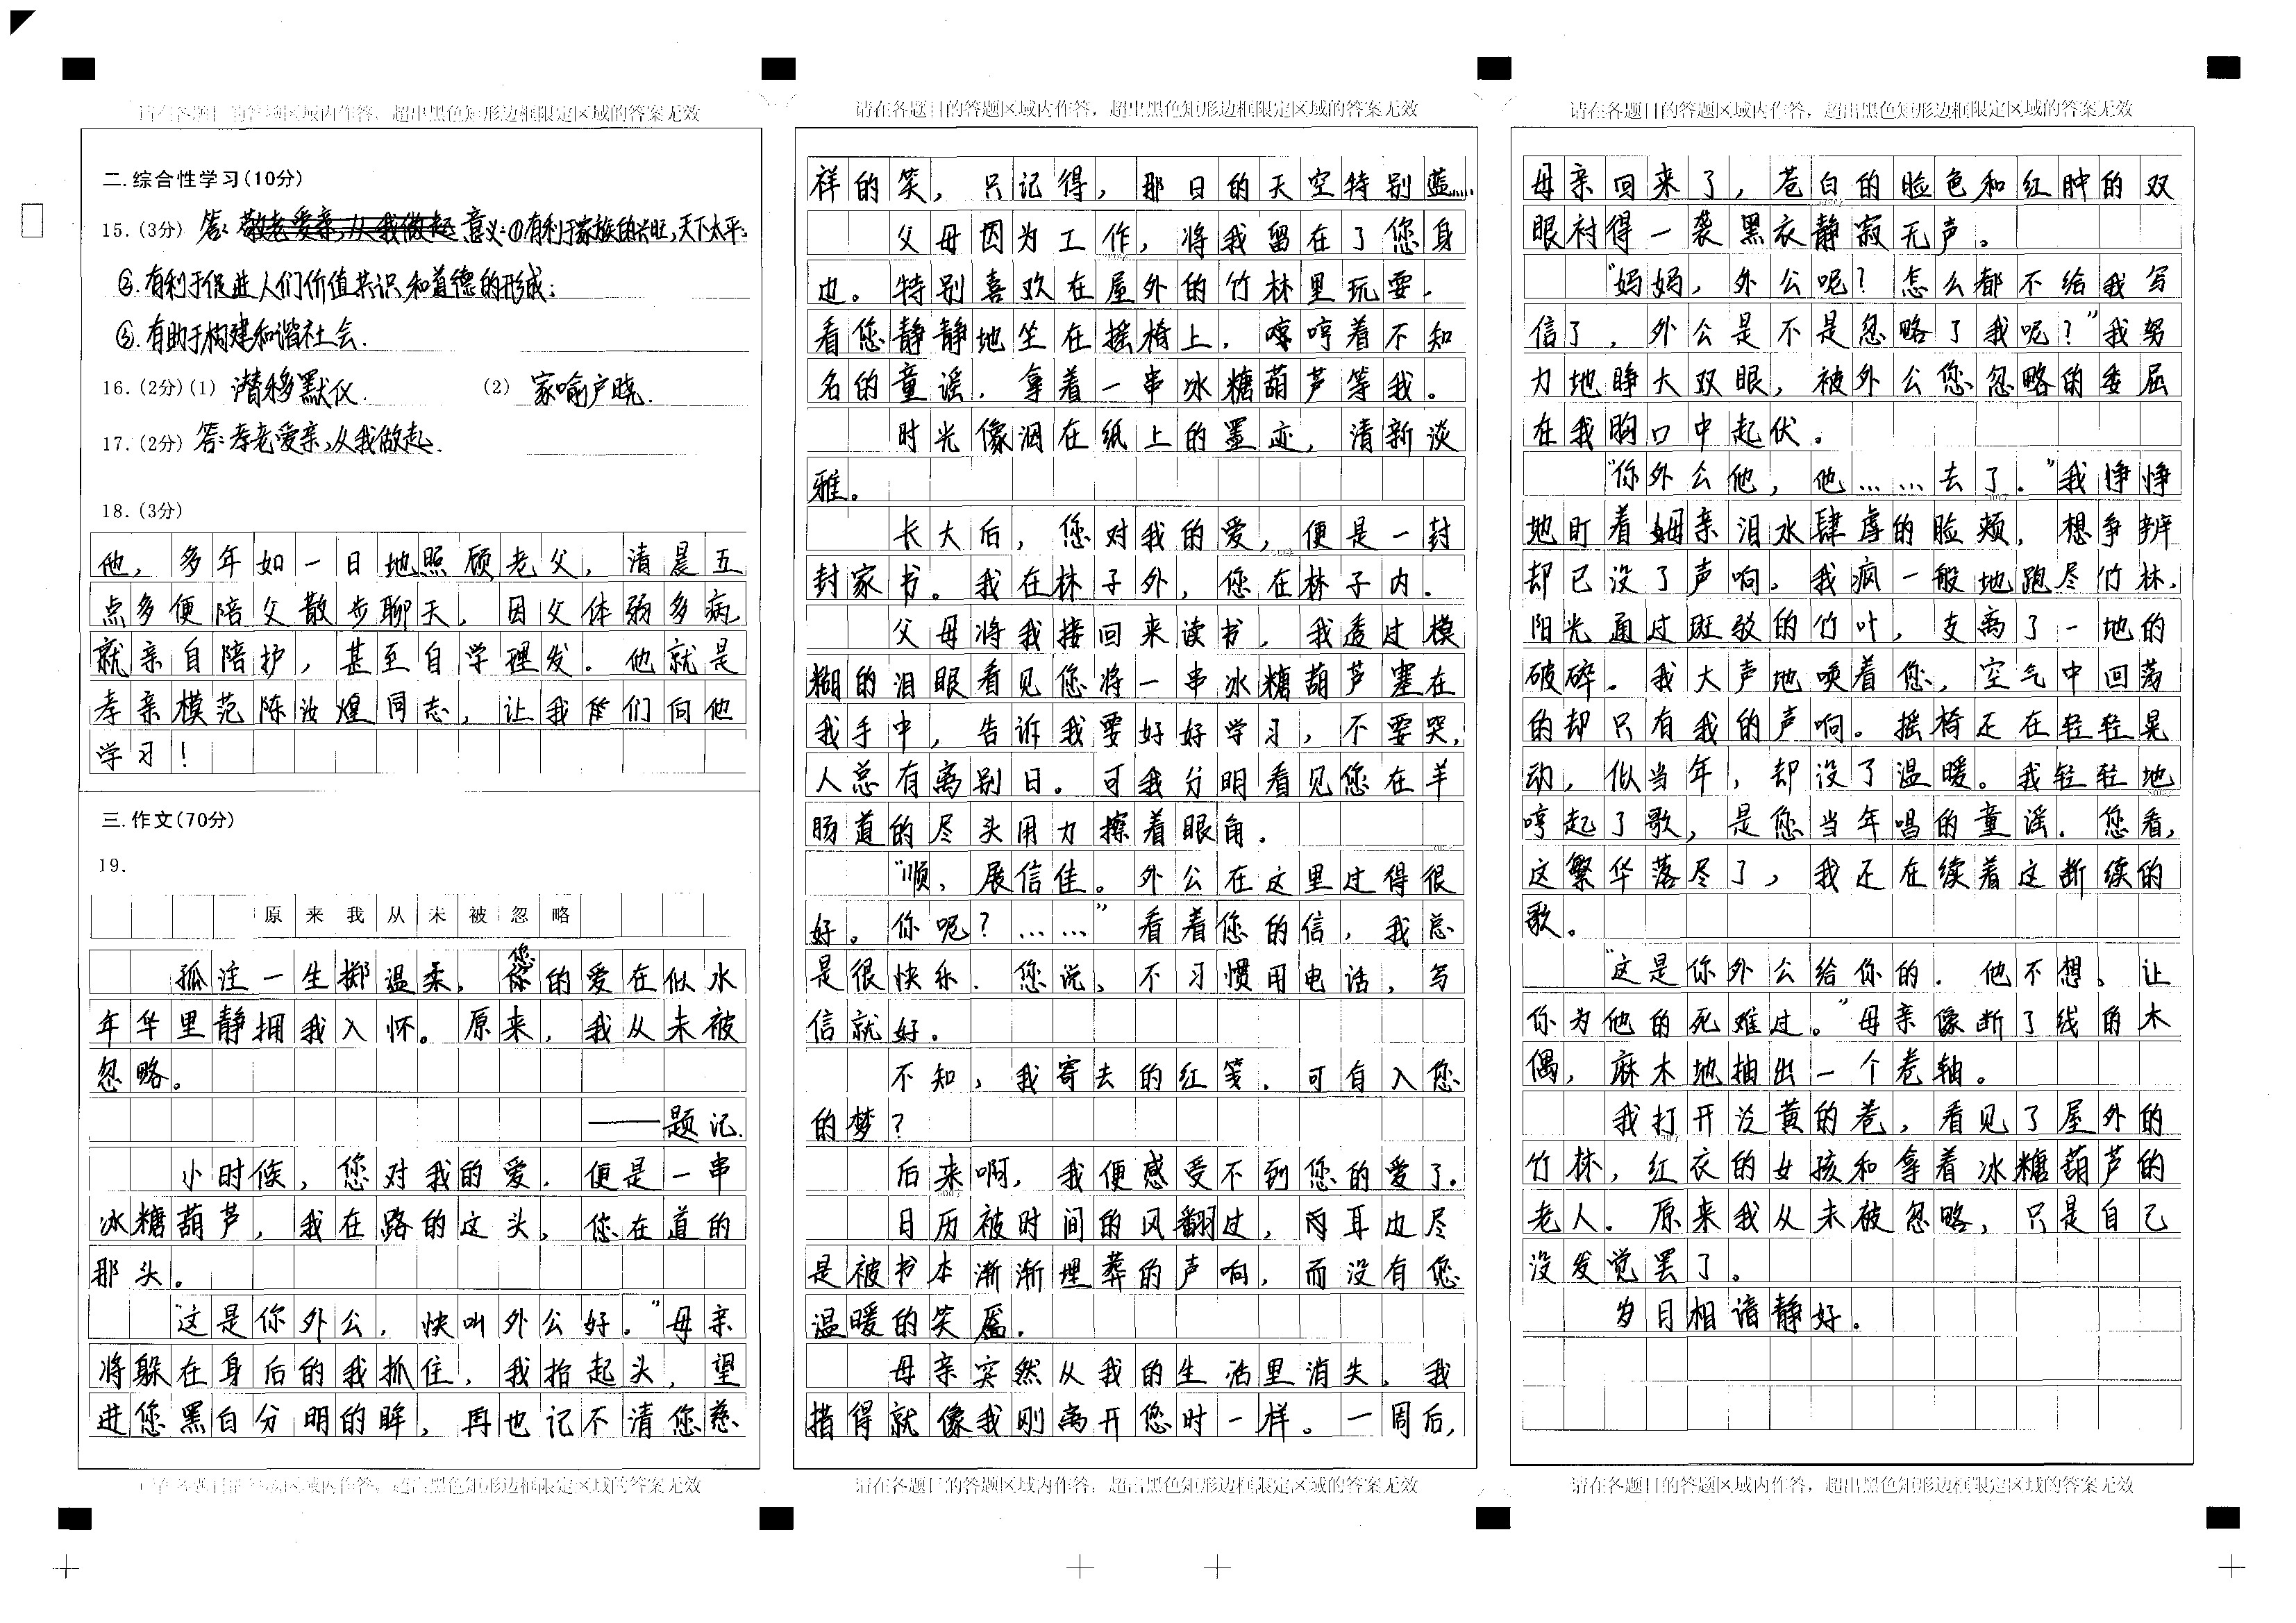 请在各题目的答题区域内作答，超出黑色矩形边框限定区域的答案无效
二.综合性学习(10分)
15.(3分) 答：敬老爱亲，从我做起 意义：①有利于家族的兴旺，天下太平；
②.有利于促进人们价值共识和道德的形成；
③.有助于构建和谐社会.
16.(2分)(1) 潜移默化. (2) 家喻户晓.
17.(2分) 答：孝老爱亲，从我做起.
18.(3分)
他，多年如一日地照顾老父，清晨五
点多便陪父散步聊天，因父体弱多病，
就亲自陪护，甚至自学理发。他就是
孝亲模范陈汝煌同志，让我们向他
学习！
三.作文(70分)
19.
原来我从未被忽略
孤注一生掷温柔，您的爱在似水
年华里静拥我入怀。原来，我从未被
忽略。
——题记.
小时候，您对我的爱.便是一串
冰糖葫芦，我在路的这头，您在道的
那头。
“这是你外公，快叫外公好。”母亲
将躲在身后的我抓住，我抬起头，望
进您黑白分明的眸，再也记不清您慈
请在各题目的答题区域内作答，超出黑色矩形边框限定区域的答案无效
请在各题目的答题区域内作答，超出黑色矩形边框限定区域的答案无效
祥的笑，只记得，那日的天空特别蓝……
父母因为工作，将我留在了您身
边。特别喜欢在屋外的竹林里玩耍.
看您静静地坐在摇椅上，哼着不知
名的童谣，拿着一串冰糖葫芦等我。
时光像洇在纸上的墨迹，清新淡
雅。
长大后，您对我的爱，便是一封
封家书。我在林子外，您在林子内.
父母将我接回来读书，我透过模
糊的泪眼看见您将一串冰糖葫芦塞在
我手中，告诉我要好好学习，不要哭，
人总有离别日。可我分明看见您在羊
肠道的尽头用力擦着眼角.
“顺，展信佳。外公在这里过得很
好。你呢？……”看着您的信，我总
是很快乐.您说，不习惯用电话，写
信就好.
不知，我寄去的红笺.可自入您
的梦？
后来啊，我便感受不到您的爱了.
日历被时间的风翻过，两耳边尽
是被书本渐渐埋葬的声响，而没有您
温暖的笑靥.
母亲突然从我的生活里消失，我
措得就像我刚离开您时一样。一周后，
请在各题目的答题区域内作答，超出黑色矩形边框限定区域的答案无效
请在各题目的答题区域内作答，超出黑色矩形边框限定区域的答案无效
母亲回来了，苍白的脸色和红肿的双
眼衬得一袭黑衣静寂无声。
“妈妈，外公呢？怎么都不给我写
信了，外公是不是忽略了我呢？”我努
力地睁大双眼，被外公您忽略的委屈
在我胸口中起伏。
“你外公他，他……去了.”我怔怔
地盯着母亲泪水肆虐的脸颊，想争辨
却已没了声响。我疯一般地跑尽竹林，
阳光通过斑驳的竹叶，支离了一地的
破碎。我大声地唤着您，空气中回荡
的却只有我的声响。摇椅还在轻轻晃
动，似当年，却没了温暖。我轻轻地
哼起了歌，是您当年唱的童谣.您看，
这繁华落尽了，我还在续着这断续的
歌。
“这是你外公给你的.他不想、让
你为他的死难过。”母亲像断了线的木
偶，麻木地抽出一个卷轴。
我打开泛黄的卷，看见了屋外的
竹林，红衣的女孩和拿着冰糖葫芦的
老人.原来我从未被忽略，只是自己
没发觉罢了。
岁月相谙静好.
请在各题目的答题区域内作答，超出黑色矩形边框限定区域的答案无效